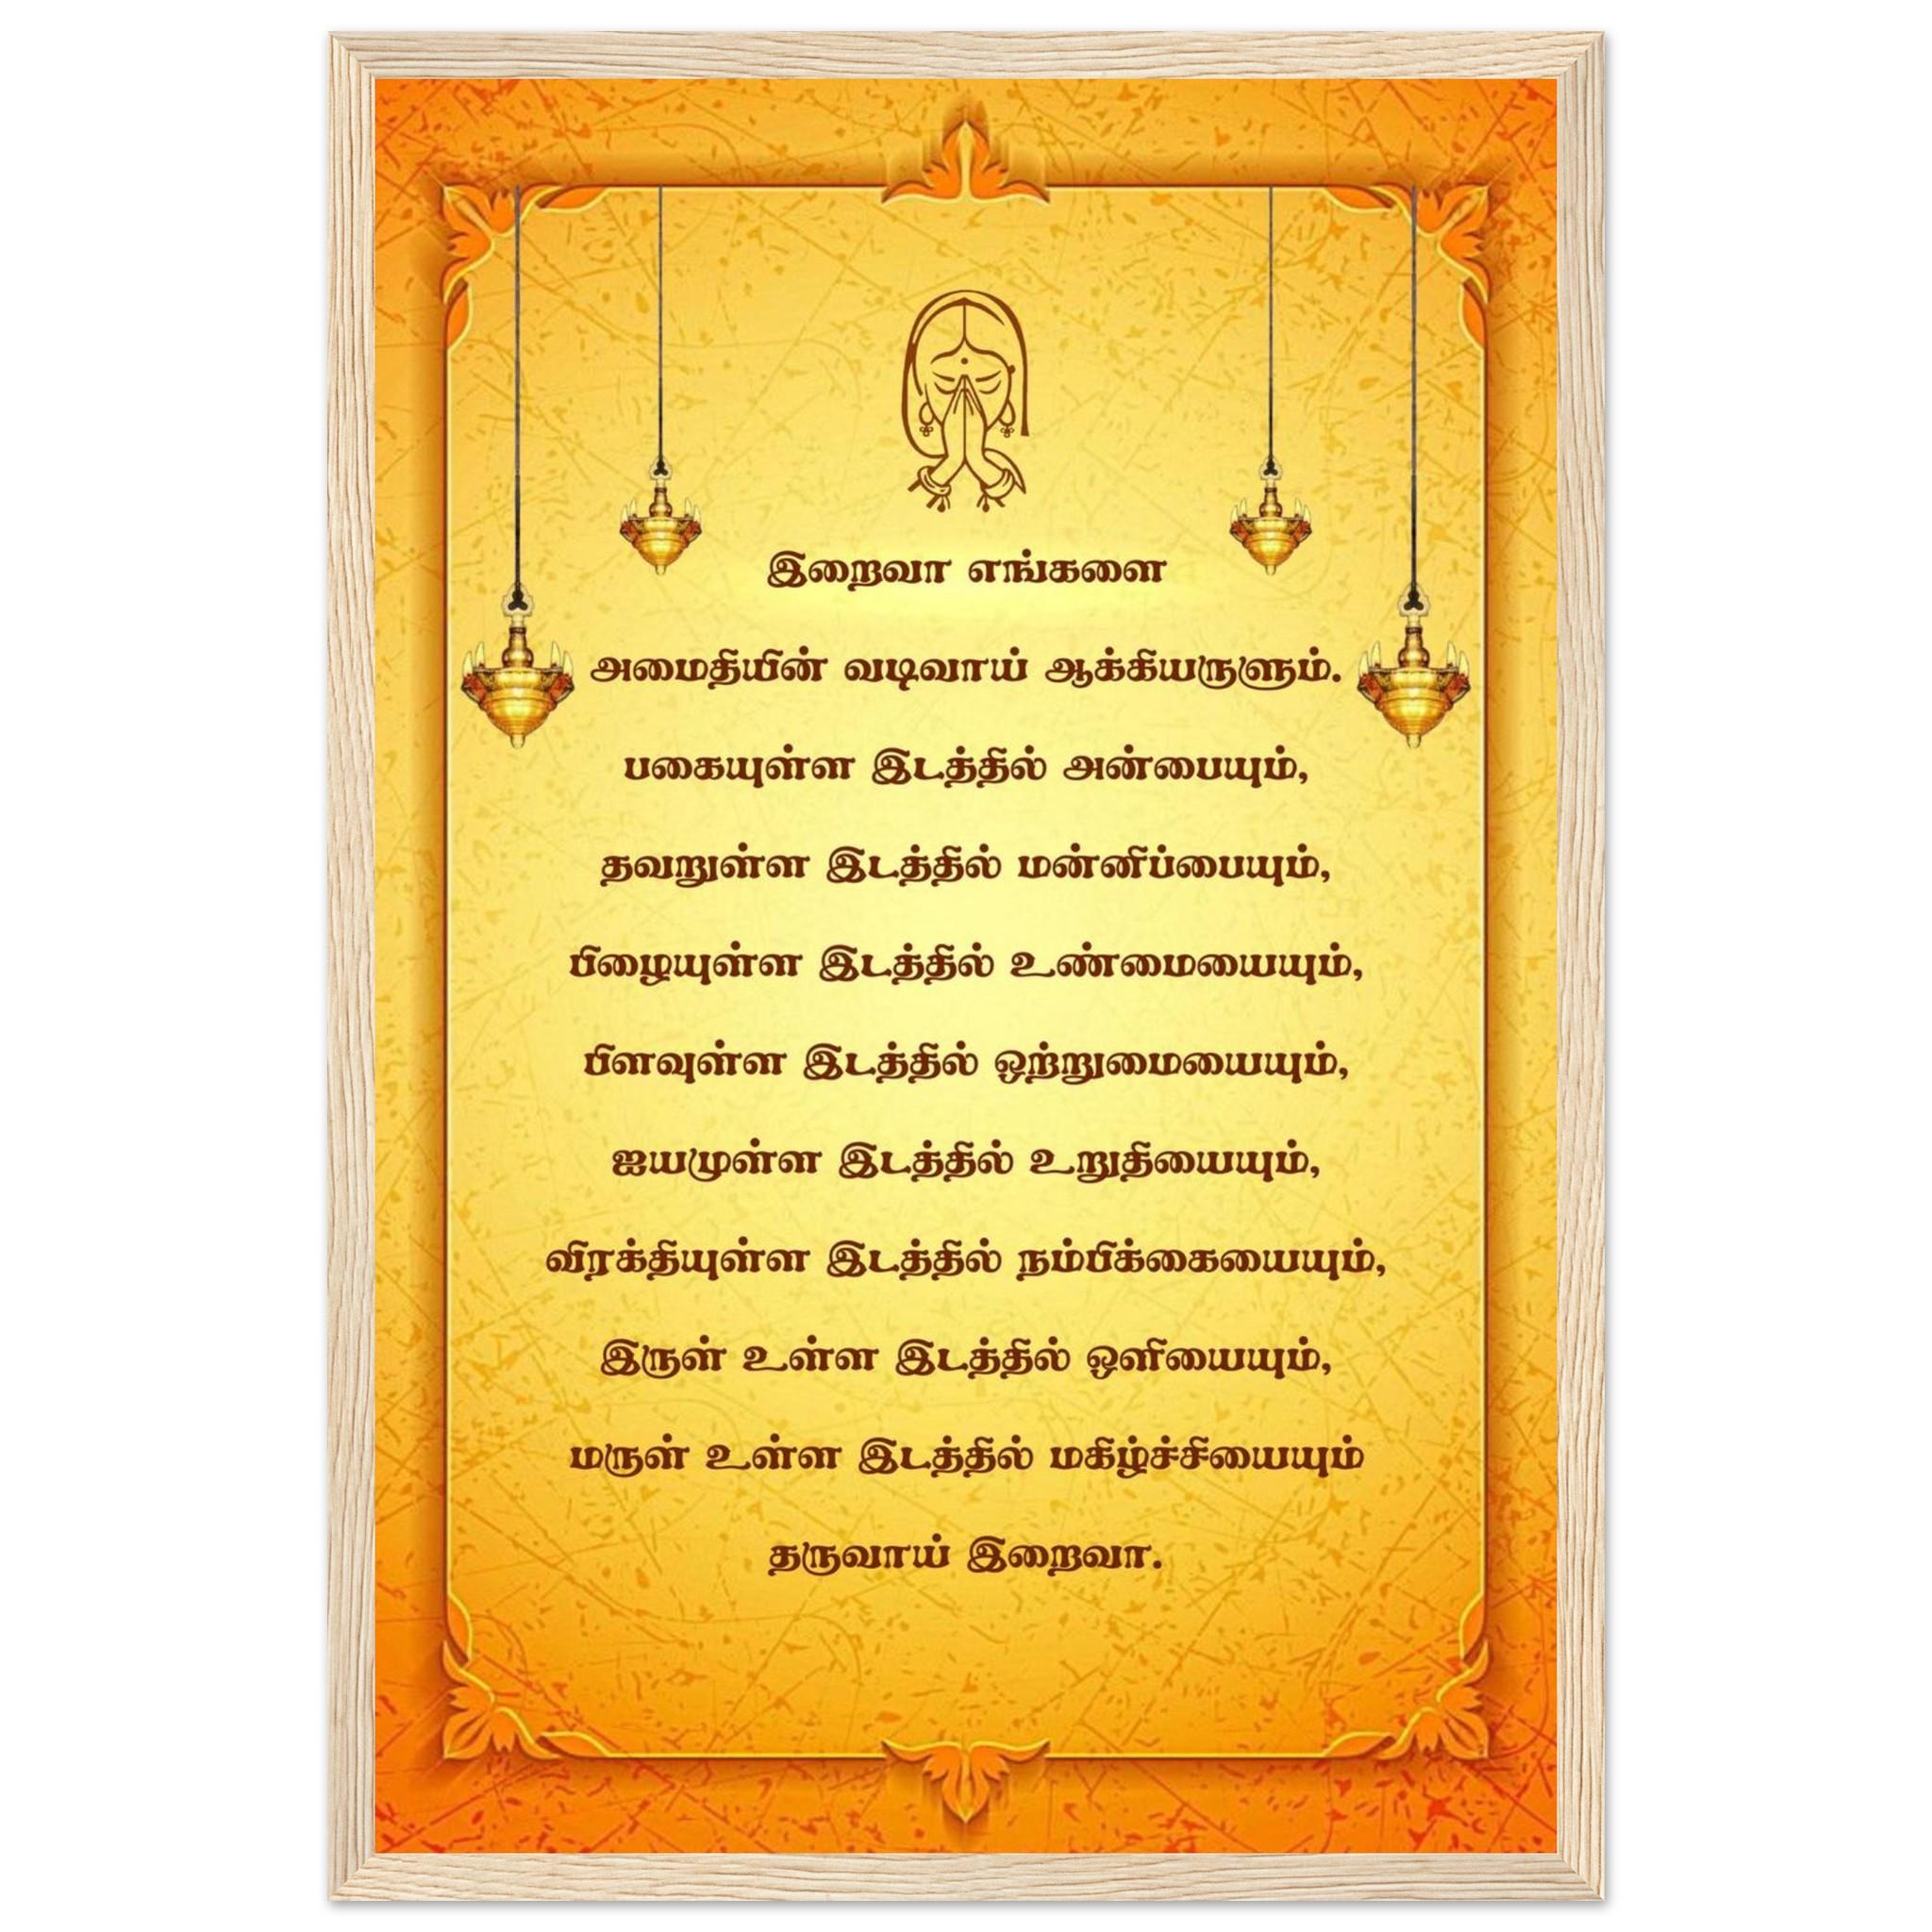 இறைவா எங்களை
அமைதியின் வடிவாய் ஆக்கியருளும்.
பகையுள்ள இடத்தில் அன்பையும்,
தவறுள்ள இடத்தில் மன்னிப்பையும்,
பிழையுள்ள இடத்தில் உண்மையையும்,
பிளவுள்ள இடத்தில் ஒற்றுமையையும்,
ஐயமுள்ள இடத்தில் உறுதியையும்,
விரக்தியுள்ள இடத்தில் நம்பிக்கையையும்,
இருள் உள்ள இடத்தில் ஒளியையும்,
மருள் உள்ள இடத்தில் மகிழ்ச்சியையும்
தருவாய் இறைவா.